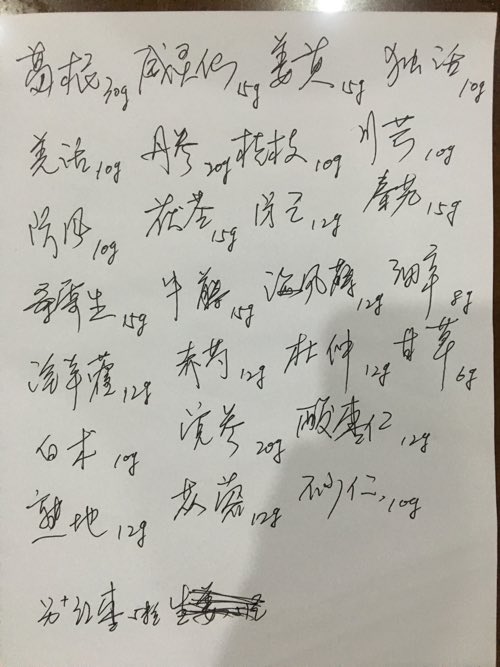 葛根30g 威灵仙15g 姜黄15g 独活10g
羌活10g 丹参20g 桂枝10g 川芎10g
防风10g 茯苓15g 防己12g 秦艽15g
桑寄生15g 牛膝15g 海风藤12g 细辛8g
淫羊藿12g 赤芍12g 杜仲12g 甘草6g
白术10g 党参20g 酸枣仁12g
熟地12g 苁蓉12g 砂仁10g
另+红枣5粒